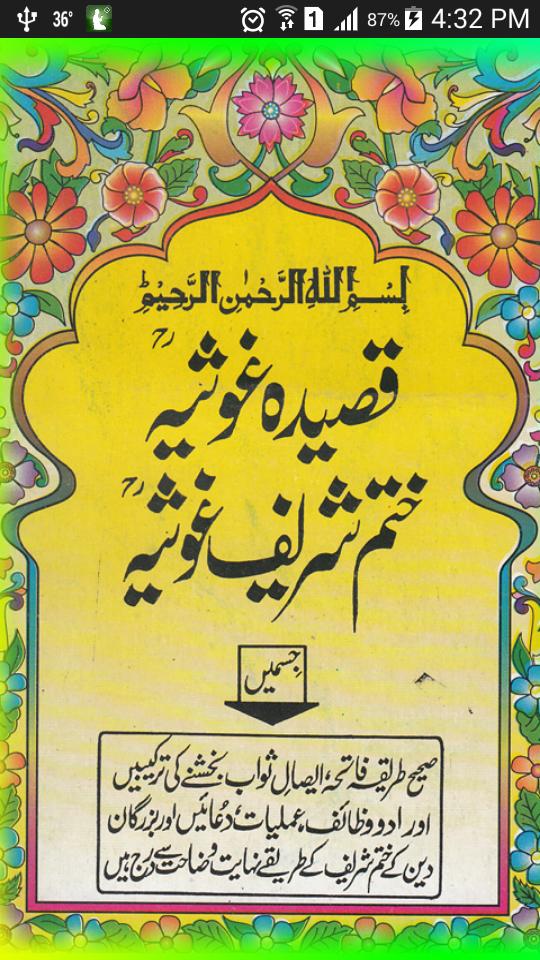 36°
1
87%
4:32 PM
بِسْمِ اللهِ الرَّحْمٰنِ الرَّحِيْمِ
قصیدہ غوثیہ رح
ختم شریف غوثیہ رح
جسمیں
صحیح طریقہ فاتحہ، ایصالِ ثواب بخشنے کی ترکیبیں
اور ادو وظائف، عملیات، دُعائیں اور بزرگان
دین کے ختم شریف کے طریقے نہایت وضاحت سے درج ہیں